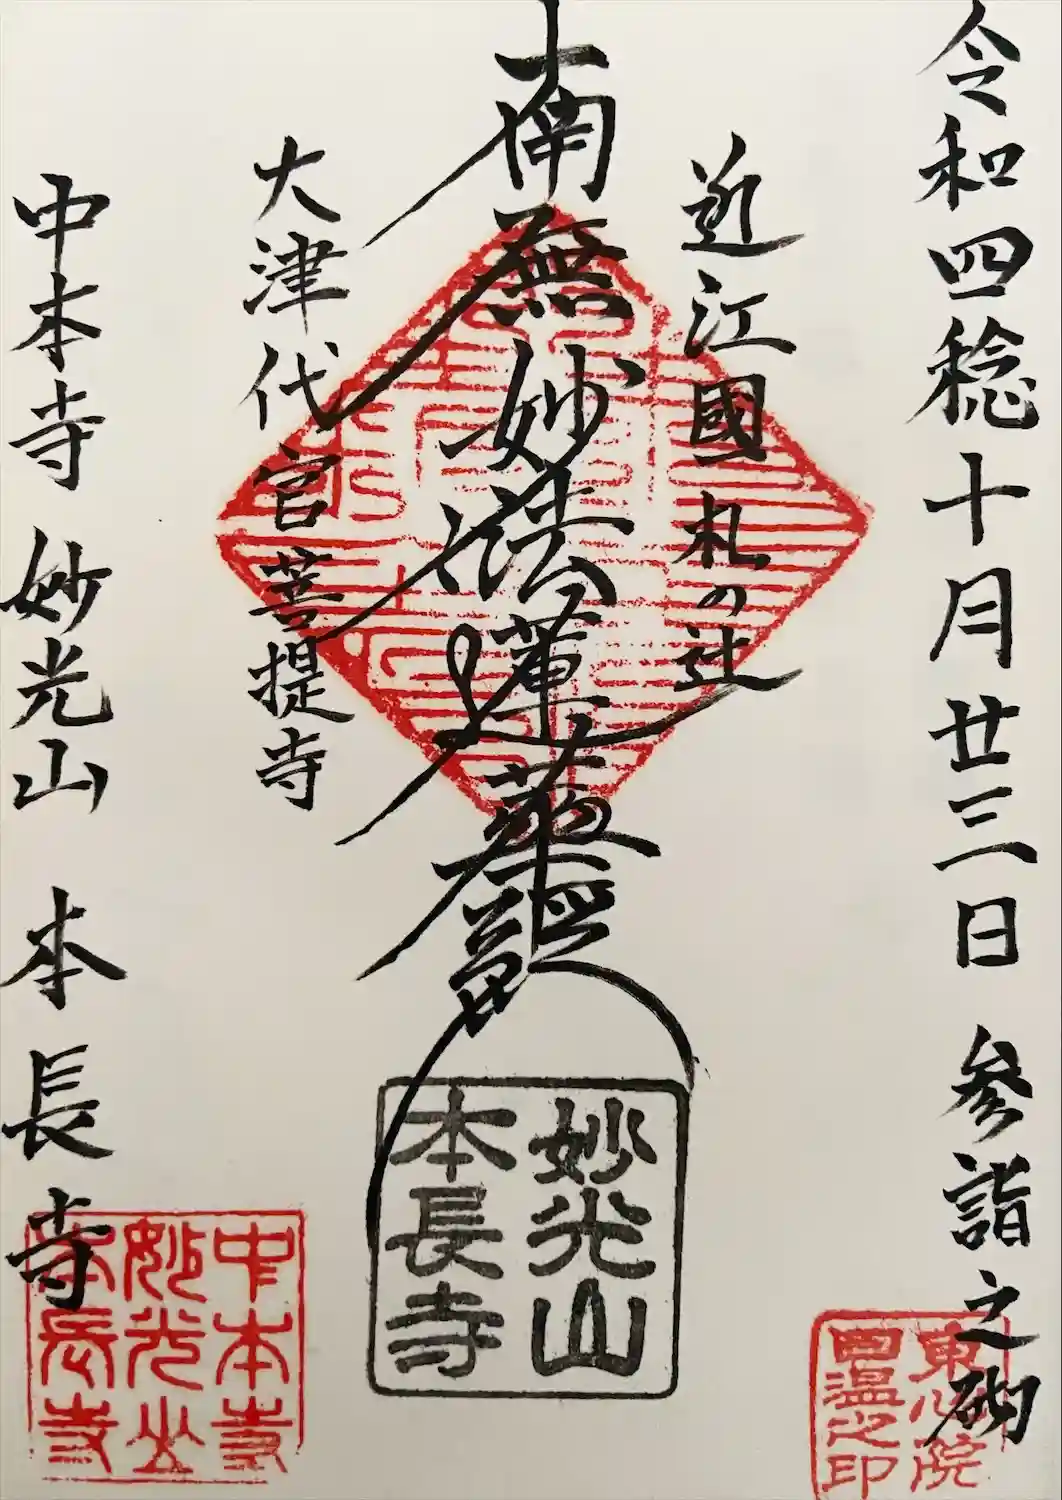 令和四稔十月廿三日 参詣之砌
近江國 札の辻
南無妙法蓮華經
大津代官菩提寺
中本寺 妙光山 本長寺
妙光山
本長寺
中本寺
妙光山
本長寺